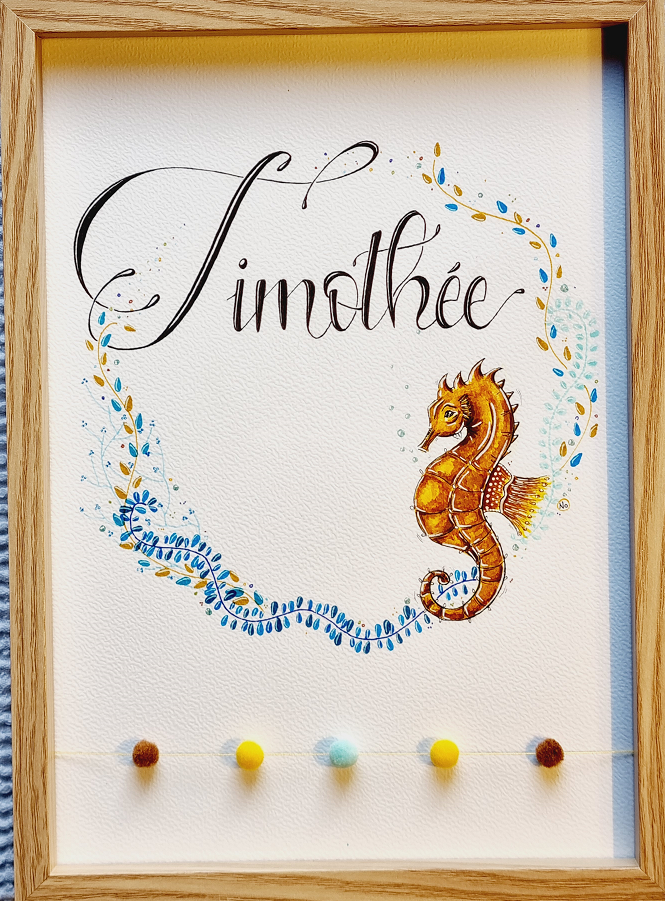 Timothée
No